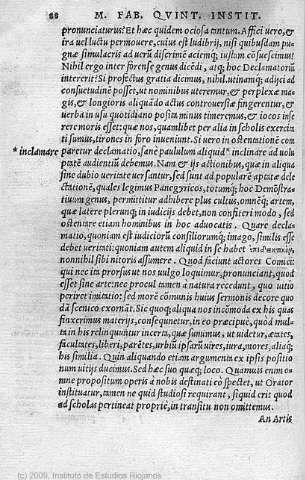 88 M. FAB. QVINT. INSTIT.
pronunciaturus? Et hæc quidem ociosa tantum. Affici uero, &
ira uel luctu permoueri, cuius est ludibrij, nisi quibusdam pu-
gnæ simulacris ad uerũ discrimẽ aciemq; iustam cõsuescimus?
Nihil ergo inter forense genus dicẽdi, atq; hoc Declamatoriũ
intererit? Si profectus gratia dicimus, nihil. utinamq; adijci ad
consuetudinẽ posset, ut nominibus uteremur, & perplexæ ma-
gis, & longioris aliquãdo actus controuersiæ fingerentur, &
uerba in usu quotidiano posita minus timeremus, & iocos inse
rere moris esset: quæ nos, quamlibet per alia in scholis exercita
ti sumus, tirones in foro inueniunt. Si uero in ostentationẽ com
* inclinare paretur declamatio, sanè paululum aliquid * inclinare ad uolu
ptatẽ audientiũ debemus. Nam & ijs actionibus, quæ in aliqua
sine dubio ueritate uersantur, sed sunt ad popularẽ aptatæ dele
ctationẽ, quales legimus Panegyricos, totumq; hoc Demõstra
tiuum genus, permittitur adhibere plus cultus, omnẽq; artem,
quæ latere plerunq; in iudicijs debet, non confiteri modo, sed
ostentare etiam hominibus in hoc aduocatis. Quare decla-
matio, quoniam est iudiciorũ consiliorumq; imago, similis esse
debet ueritati: quoniam autem aliquid in se habet
nonnihil sibi nitoris assumere. Quod faciunt actores Comici:
qui nec ita prorsus ut nos uulgo loquimur, pronunciant, quod
esset sine arte: nec procul tamen à natura recedunt, quo uitio
periret imitatio: sed morẽ cõmunis huius sermonis decore quo
dã scenico exornãt. Sic quoq; aliqua nos incõmoda ex his quas
finxerimus materijs, consequentur, in eo præcipuè, quòd mul-
ta in his relinquuntur incerta, quæ sumimus, ut uidetur, ætates,
facultates, liberi, parẽtes, urbiũ ipsarũ uires, iura, mores, alíaq;
his similia. Quin aliquando etiam argumenta ex ipsis positio
num uitijs ducimus. Sed hæc suo quæq; loco. Quamuis enim o-
mne propositum operis à nobis destinati eò spectet, ut Orator
instituatur, tamen ne quid studiosi requirant, siquid erit quod
ad scholas pertineat propriè, in transitu non omittemus.
An Artis
(c) 2009, Instituto de Estudios Riojanos